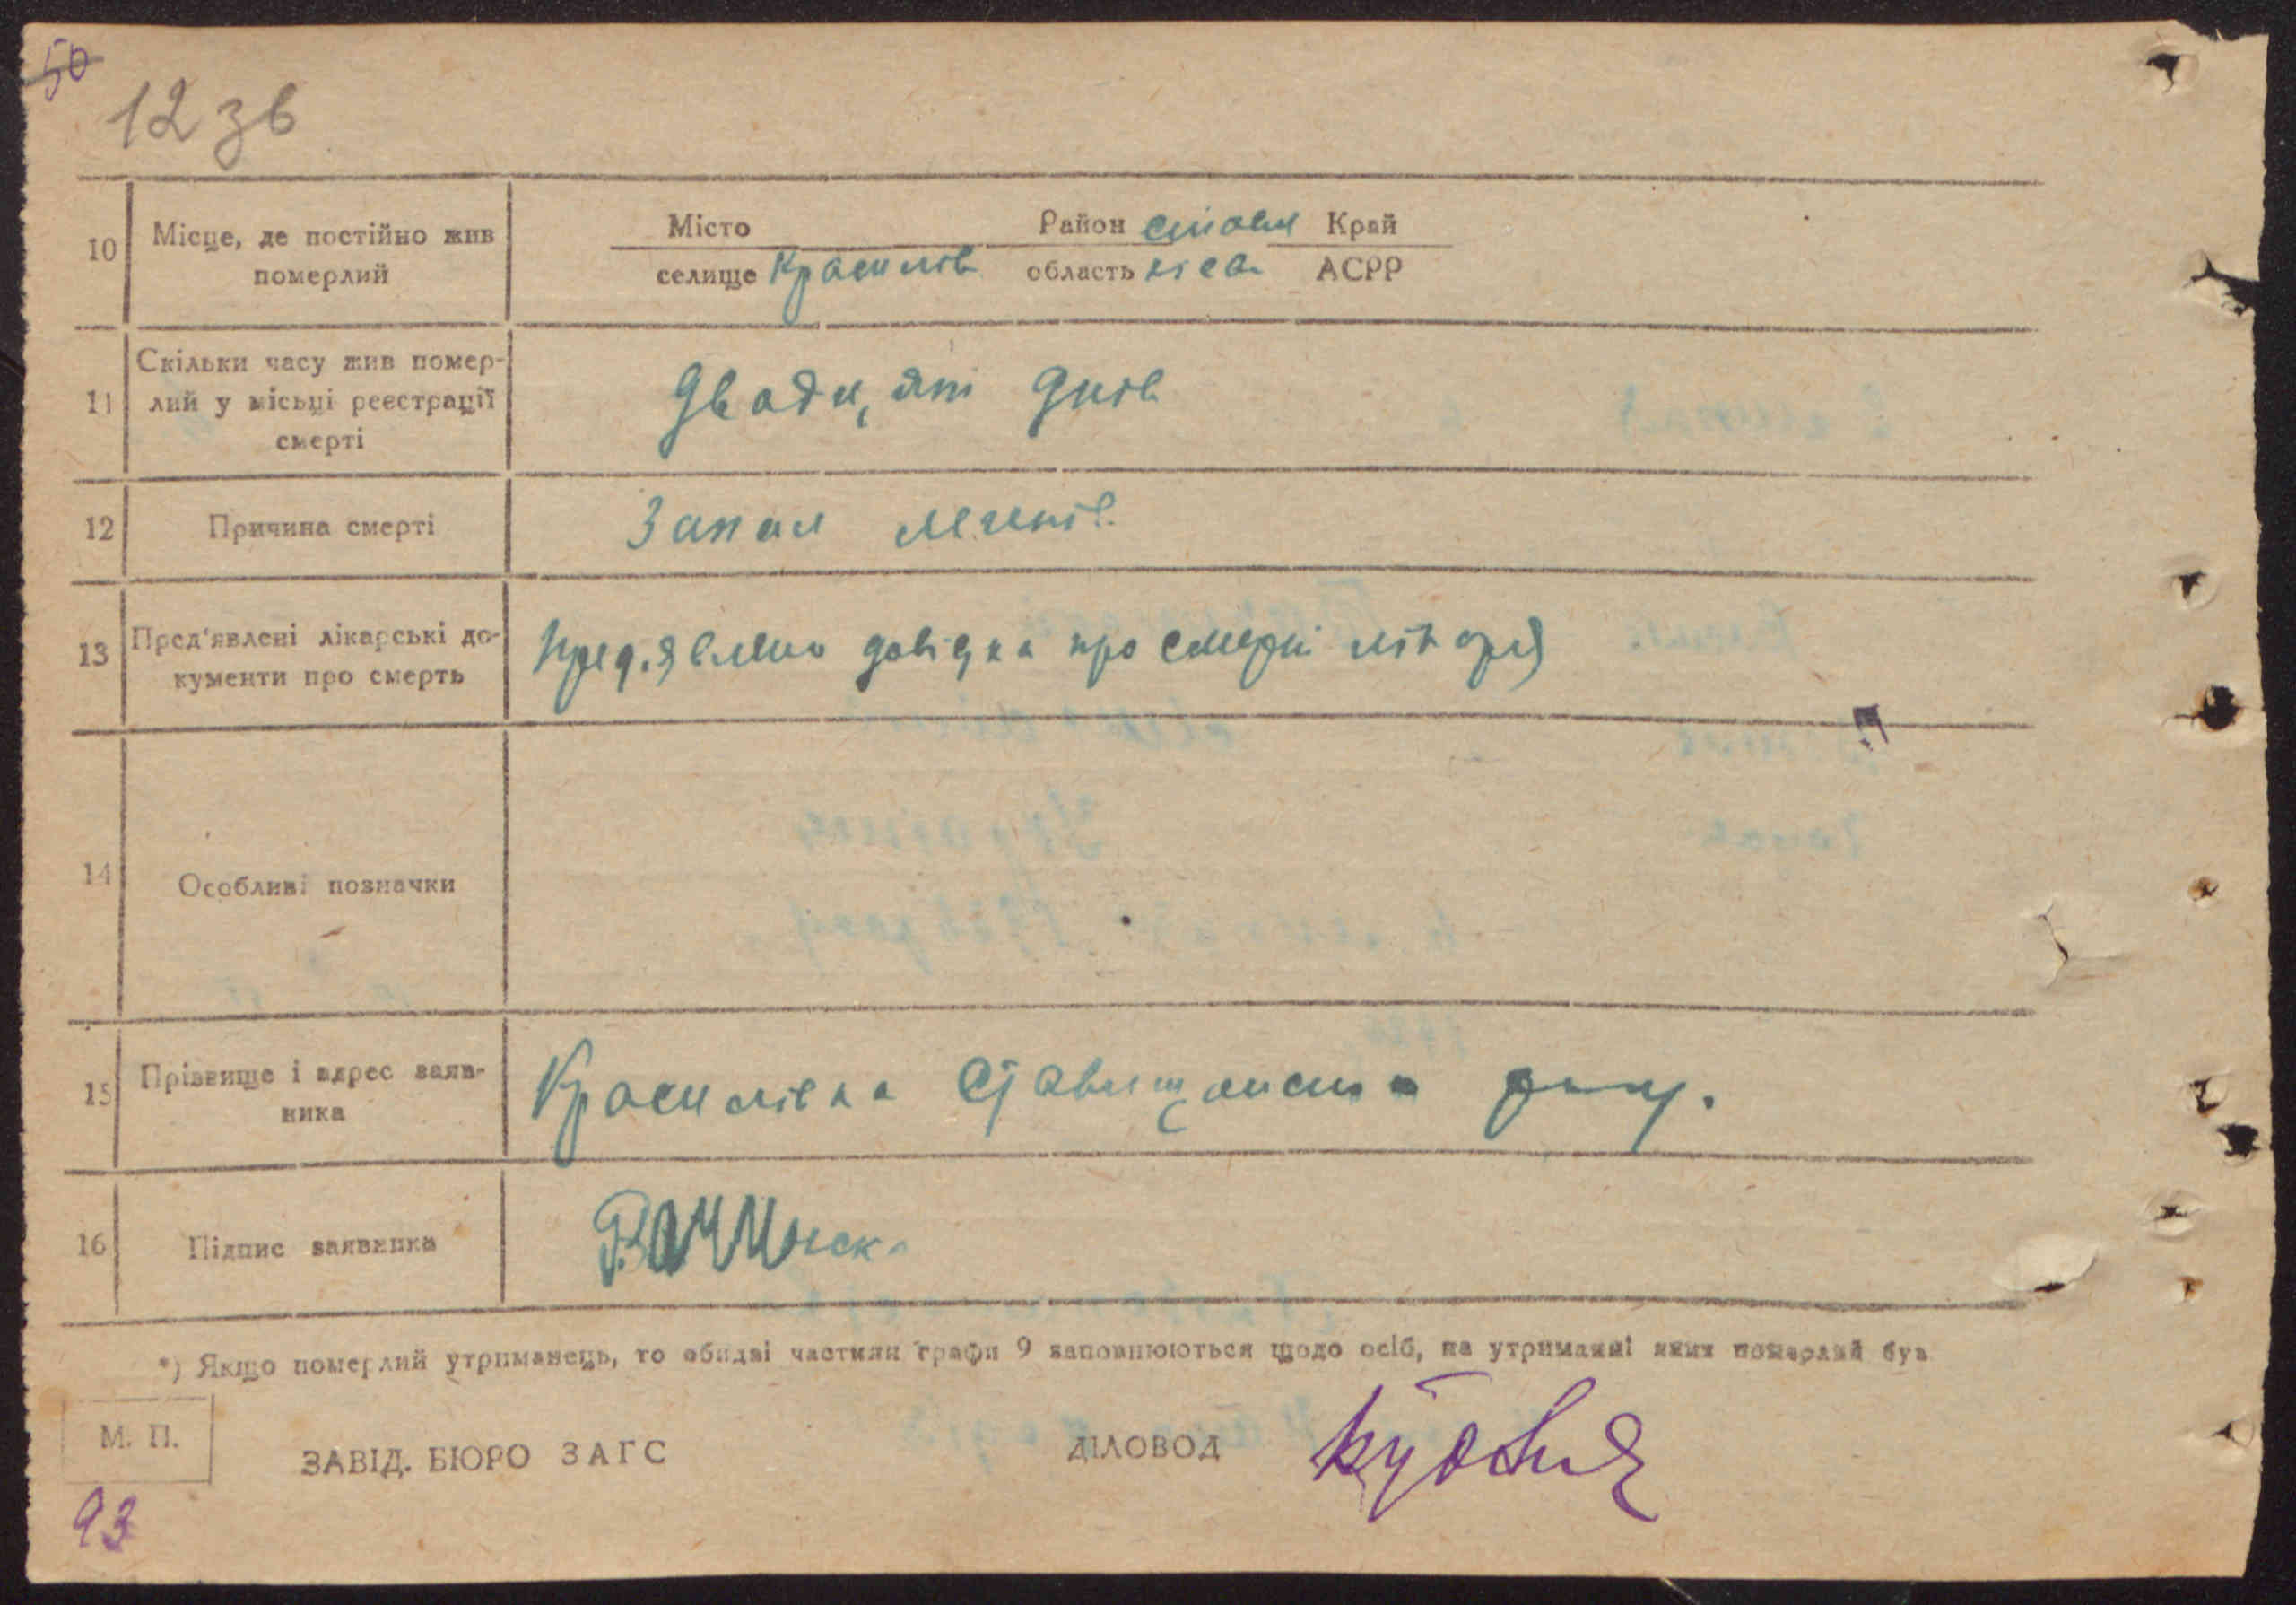 50
12 зв
10 Місце, де постійно жив померлий
Місто Район ставищ Край
селище Красилів область київ АСРР
11 Скільки часу жив помер-
лий у місці реєстрації
смерті
двадцять днів
12 Причина смерті Запал легенів.
13 Пред'явлені лікарські до-
кументи про смерть
пред.явлено довідка про смерть лікаря
14 Особливі позначки
15 Прізвище і адрес заяв-
ника
Красилівка Ставищанська
16 Підпис заявника
*) Якщо померлий утриманець, то обидві частини графи 9 заповнюються щодо осіб, на утриманні яких померлий був
М. П.
ЗАВІД. БЮРО ЗАГС ДІЛОВОД
93